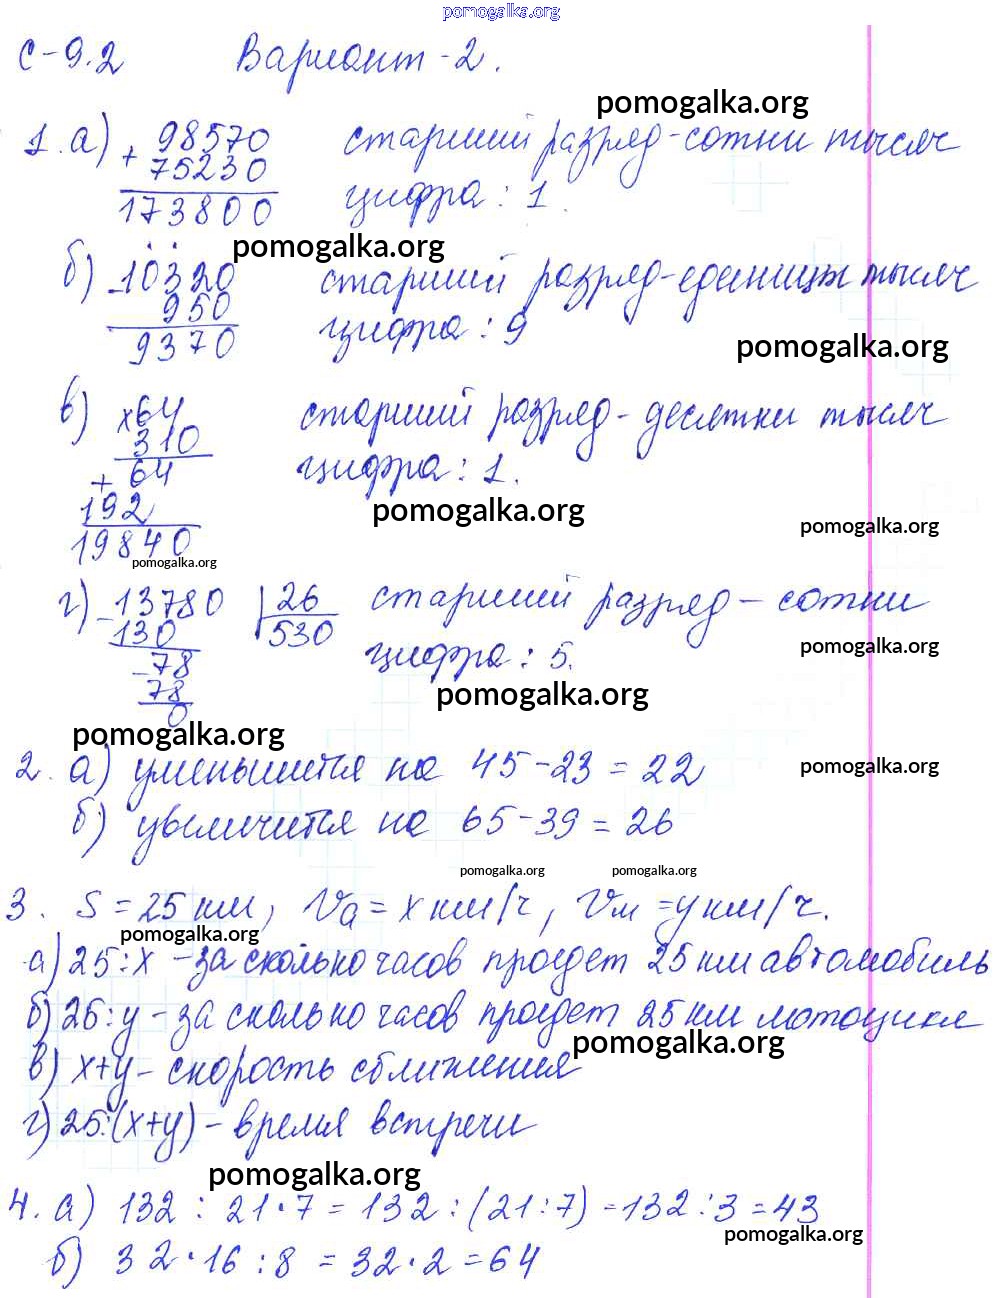 pomogalka.org
С-9.2 Вариант-2.
pomogalka.org
1. а) + 98570 старший разряд-сотни тысяч
75230
173800 цифра: 1.
pomogalka.org
б) - 10320 старший разряд-единицы тысяч
950 цифра: 9
9370
pomogalka.org
в) x 64 старший разряд-десятки тысяч
310
+ 64 цифра: 1.
192
19840
pomogalka.org
pomogalka.org
pomogalka.org
г) - 13780 26 старший разряд - сотни
130 530
- 78 цифра: 5.
78
0
pomogalka.org
pomogalka.org
pomogalka.org
2. а) уменьшится на 45-23=22
pomogalka.org
б) увеличится на 65-39=26
pomogalka.org pomogalka.org
3. S=25 км, Vа=x км/ч, Vм=y км/ч.
pomogalka.org
а) 25:x - за сколько часов проедет 25 км автомобиль
б) 25:y - за сколько часов проедет 25 км мотоцикл
pomogalka.org
в) x+y - скорость сближения
г) 25:(x+y) - время встречи
pomogalka.org
4. а) 132:21·7=132:(21:7)=132:3=43
pomogalka.org
б) 32·16:8=32·2=64